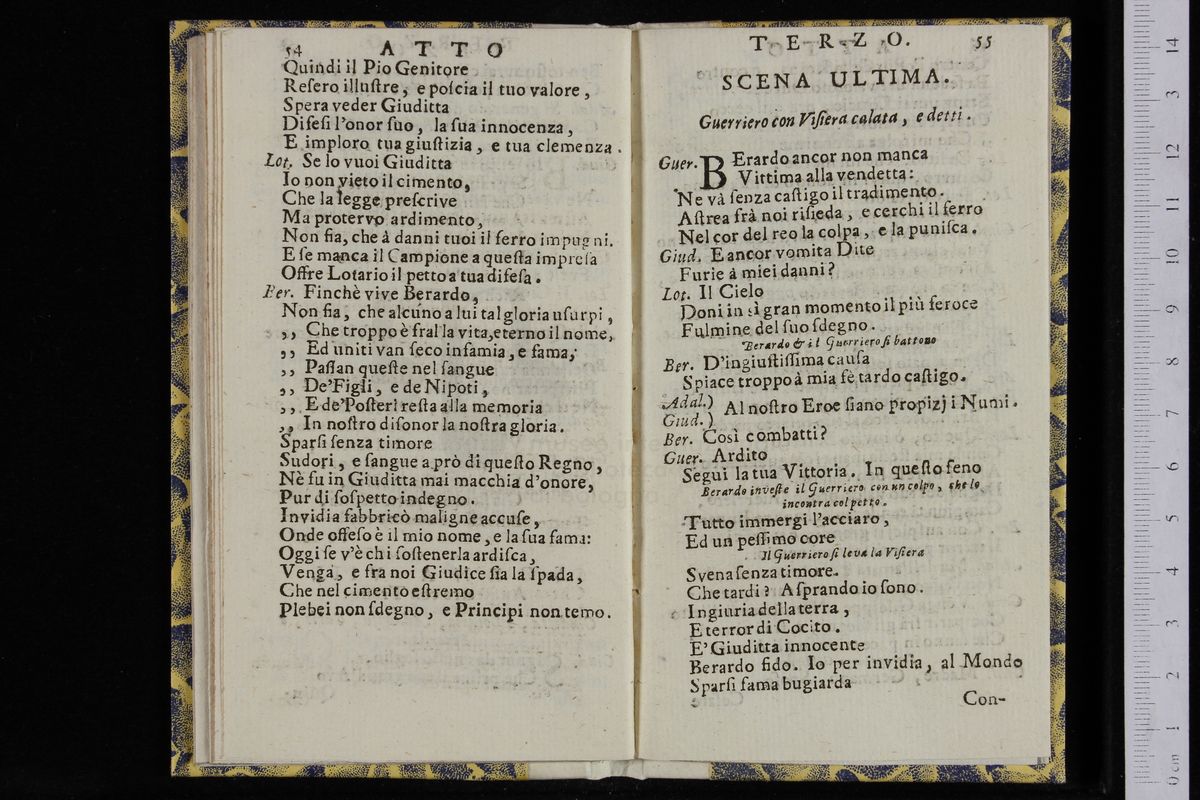 54 ATTO
Quindi il Pio Genitore
Reſero illuſtre, e poſcia il tuo valore,
Spera veder Giuditta
Difeſi l'onor ſuo, la ſua innocenza,
E imploro tua giuſtizia, e tua clemenza.
Lot. Se lo vuoi Giuditta
Io non vieto il cimento,
Che la legge preſcrive
Ma protervo ardimento,
Non fia, che à danni tuoi il ferro impugni.
E ſe manca il Campione a queſta impreſa
Offre Lotario il petto a tua difeſa.
Ber. Finchè vive Berardo,
Non fia, che alcuno a lui tal gloria uſurpi,
,, Che troppo è fral la vita, eterno il nome,
,, Ed uniti van ſeco infamia, e fama,
,, Paſſan queſte nel ſangue
,, De'Figli, e de Nipoti,
,, E de'Poſteri reſta alla memoria
,, In noſtro diſonor la noſtra gloria.
Sparſi ſenza timore
Sudori, e ſangue a prò di queſto Regno,
Nè fu in Giuditta mai macchia d'onore,
Pur di ſoſpetto indegno.
Invidia fabbricò maligne accuſe,
Onde offeſo è il mio nome, e la ſua fama:
Oggi ſe v'è chi ſoſtenerla ardiſca,
Venga, e fra noi Giudice ſia la ſpada,
Che nel cimento eſtremo
Plebei non ſdegno, e Principi non temo.
TERZO. 55
SCENA ULTIMA.
Guerriero con Viſiera calata, e detti.
Guer. BErardo ancor non manca
Vittima alla vendetta:
Ne và ſenza caſtigo il tradimento.
Aſtrea frà noi riſieda, e cerchi il ferro
Nel cor del reo la colpa, e la puniſca.
Giud. E ancor vomita Dite
Furie à miei danni?
Lot. Il Cielo
Doni in sì gran momento il più feroce
Fulmine del ſuo ſdegno.
Berardo & il Guerriero ſi battono
Ber. D'ingiuſtiſſima cauſa
Spiace troppo à mia fè tardo caſtigo.
Adal.) Al noſtro Eroe ſiano propizj i Numi.
Giud.)
Ber. Così combatti?
Guer. Ardito
Segui la tua Vittoria. In queſto ſeno
Berardo inveſte il Guerriero con un colpo, che lo
incontra col petto.
Tutto immergi l'acciaro,
Ed un peſſimo core
Il Guerriero ſi leva la Viſiera
Svena ſenza timore.
Che tardi? Aſprando io ſono.
Ingiuria della terra,
E terror di Cocito.
E' Giuditta innocente
Berardo fido. Io per invidia, al Mondo
Sparſi fama bugiarda
Con-